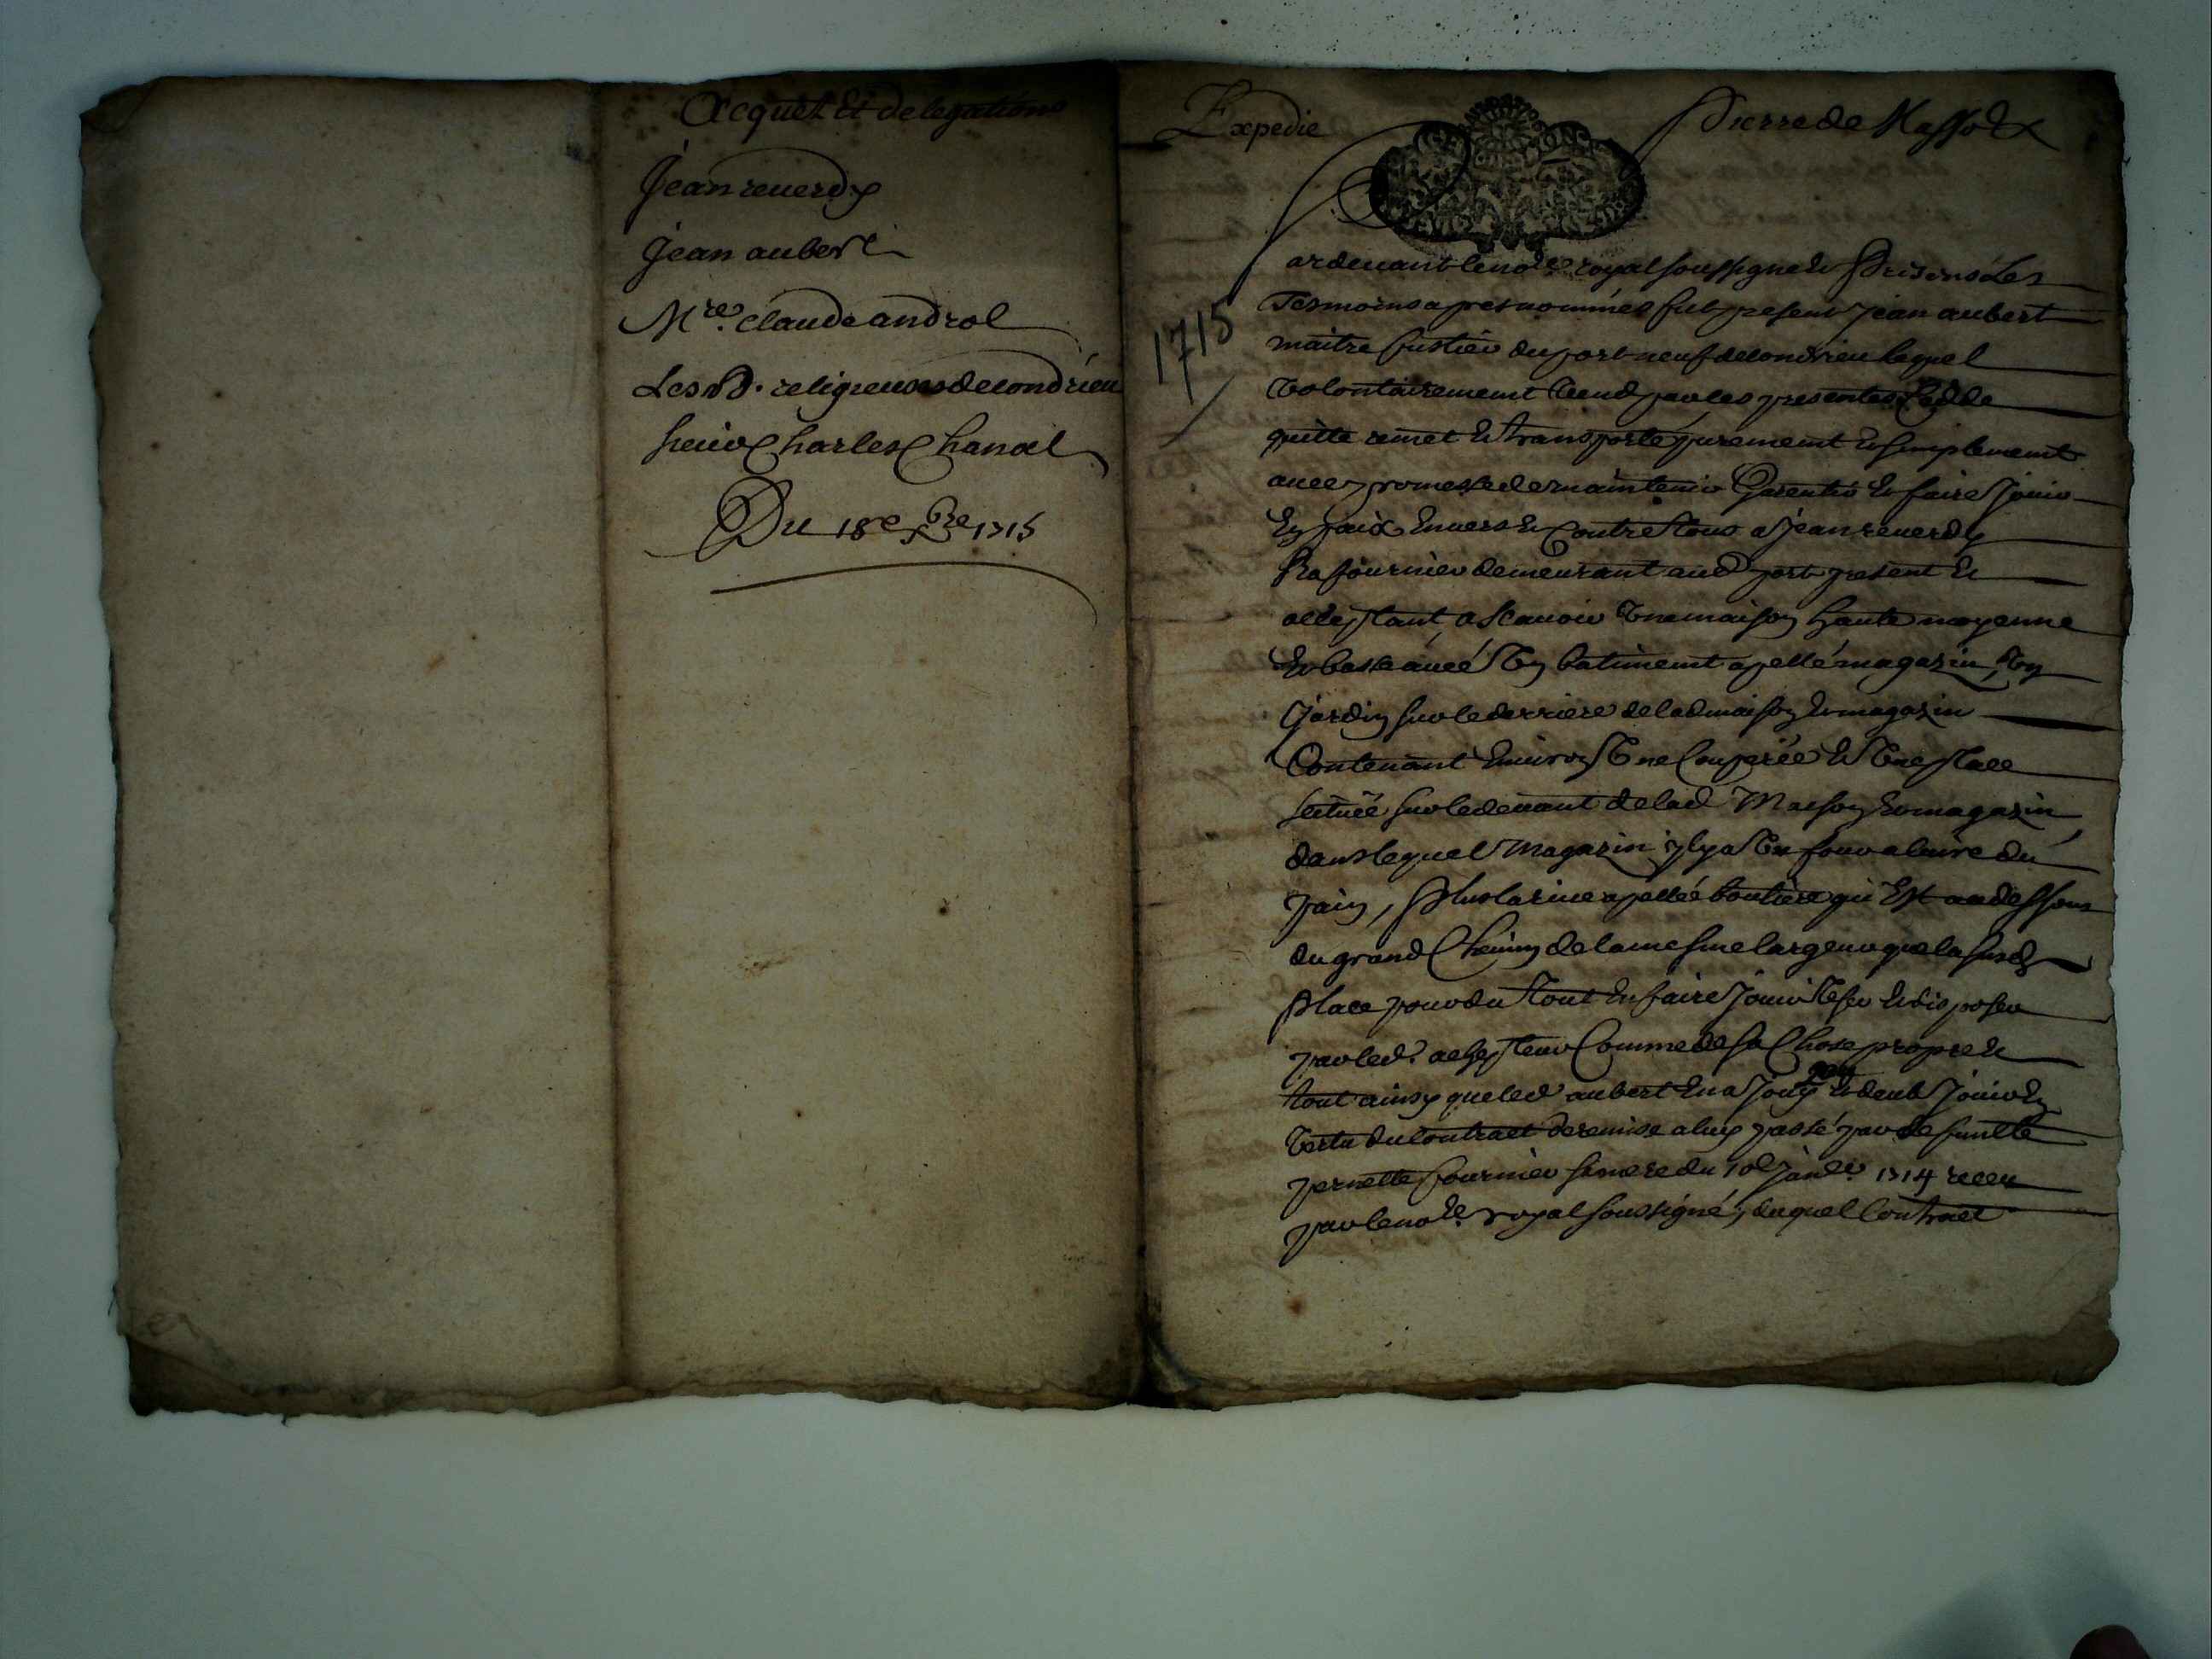 Acquet Et delegations
Jean reuerdy
Jean aubert
Mre. Claude androl
Les D. religieuses de condrieu
sieur Charles Chanal
Du 18e 1715
Expedie
Pierre de Masso
1715
ardeuant le no.re royal soussigné et Presens Les
Tesmoins apres nommés fut present jean aubert
maitre fustier du port neuf de condrieu lequel
Volontairement Vend par les presentes Cedde
quitte remet et transporte purement et simplement
auec promesse de maintenir Garentir et faire Jouir
En paix Enuers et Contre tous a Jean reuerdy
demeurant aud port present et
acceptant, a scauoir Vne maison haute moyenne
Et basse auec Vn batiment apellé magazin, Vn
Jardin sur le derriere de lad maison et magazin
Contenant Enuiron Vne Couperée et Vne place
scituée sur le deuant de lad Maison et magazin
dans lequel Magazin il y a Vn four a cuire du
pain, Plus la riue apellée qui Est au dessous
du grand Chemin de la mesme largeur que la susd
Place pour du tout En faire Jouir Vser et disposer
par led. achepteur Comme de sa Chose propre et
tout ainsy que led aubert En a Jouy et deub Jouir En
Vertu du Contract de remise a luy passé par deffunte
pernette fournier sa mere du 10e Jan.er 1714 receu
par le no.re royal soussigné, duquel Contract